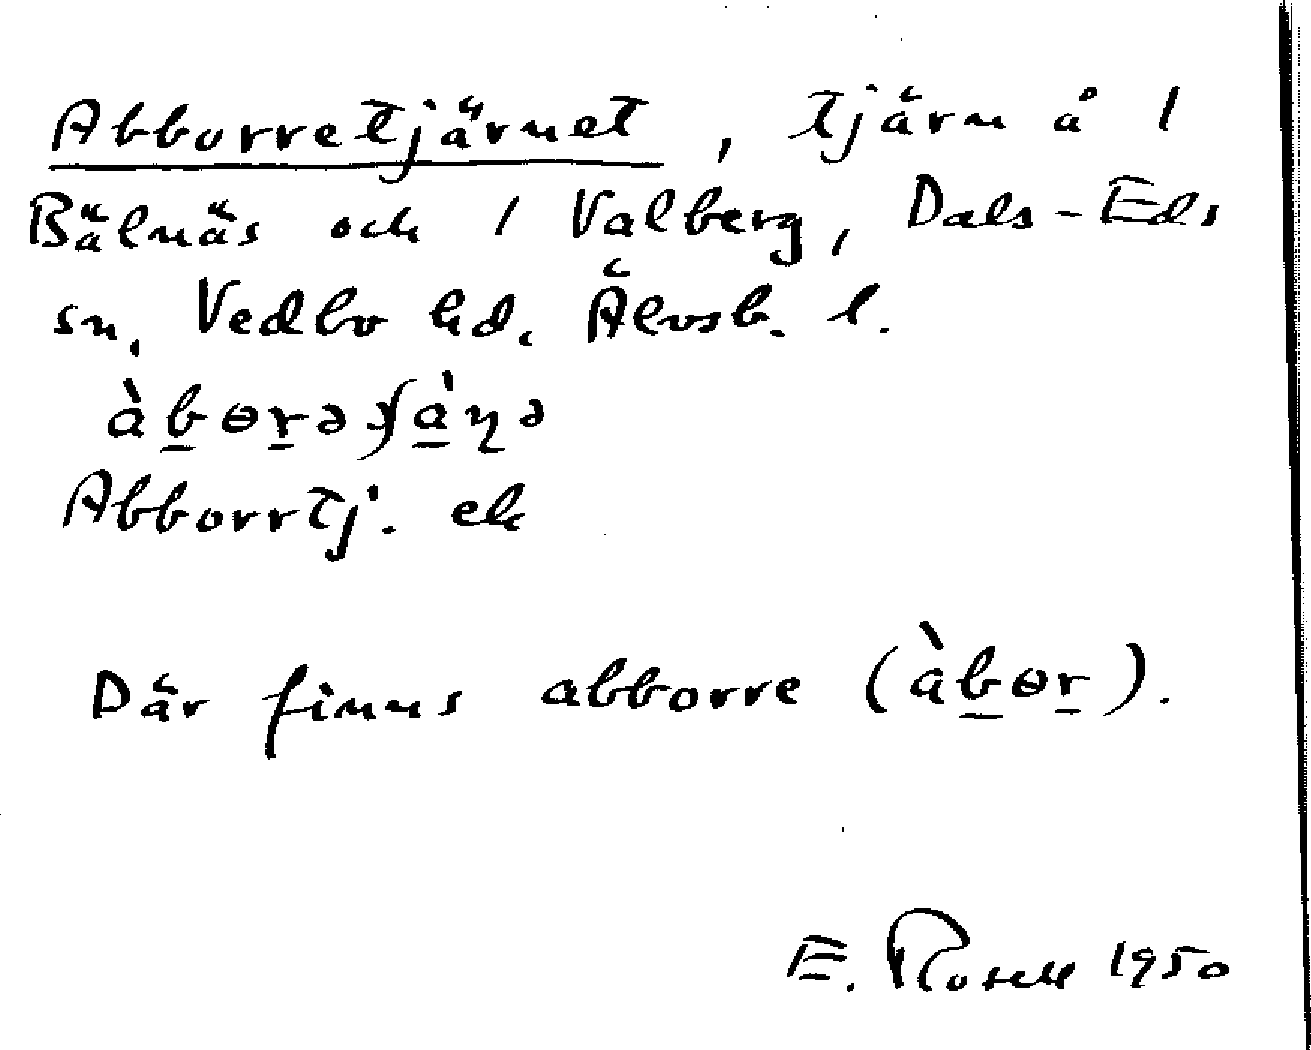 Abborretjärnet, tjärn å 1
Bälnäs och 1 Valberg, Dals-Eds
sn, Vedbo hd, Älvsb. l.
àb̲ɵr̲ə ʃà̲ɳə
Abborrtj. ek
Där finns abborre (àb̲ɵr̲).
E. Rosell 1950